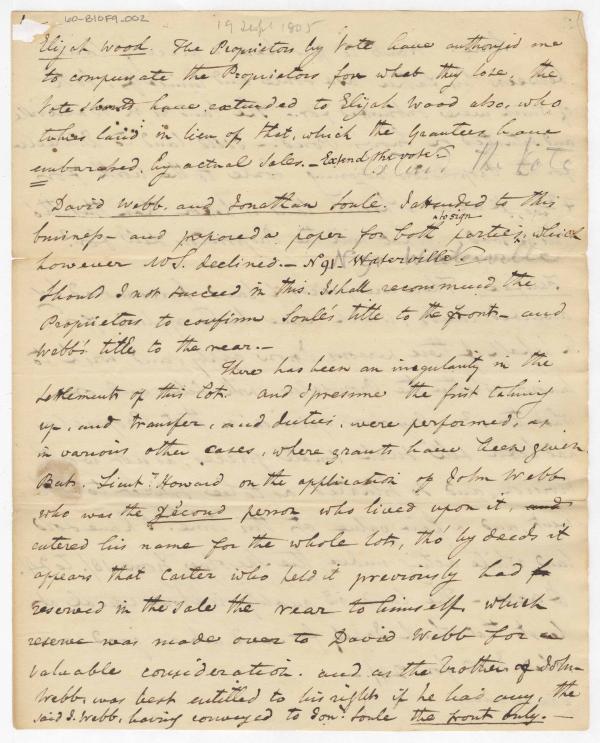 60-B10F9-002
19 Sept 1805
Elijah Wood. The Proprietors by Vote have authorized me
to compensate the Proprietors for what they lose, the
Vote should have extended to Elijah Wood also, who
takes land in lieu of that, which the Grantees have
embarassed by actual sales. - Extend the vote
David Webb and Jonathan Soule. I attended to this
business - and prepared a paper for both parties, which
to sign
however Mr S. declined. - N 91 - Waterville
Should I not succeed in this I shall recommend the
Proprietors to confirm Soule's title to the front - and
Webb's title to the rear. -
There has been an irregularity in the
settlements of this lot. and I presume the first taking
up, and transfer, and duties, were performed, as
in various other cases, where grants have been given
But. Lieut.t Howard on the application of John Webb
who was the second person who lived upon it, and
entered his name for the whole lot, tho' by deeds it
appears that Carter who held it previously had
reserved in the sale the rear to himself, which
reserve was made over to David Webb for a
valuable consideration. and as the brother of John
Webb, was best entitled to his rights if he had any, the
said J. Webb, having conveyed to Jon.n Soule the front only. -